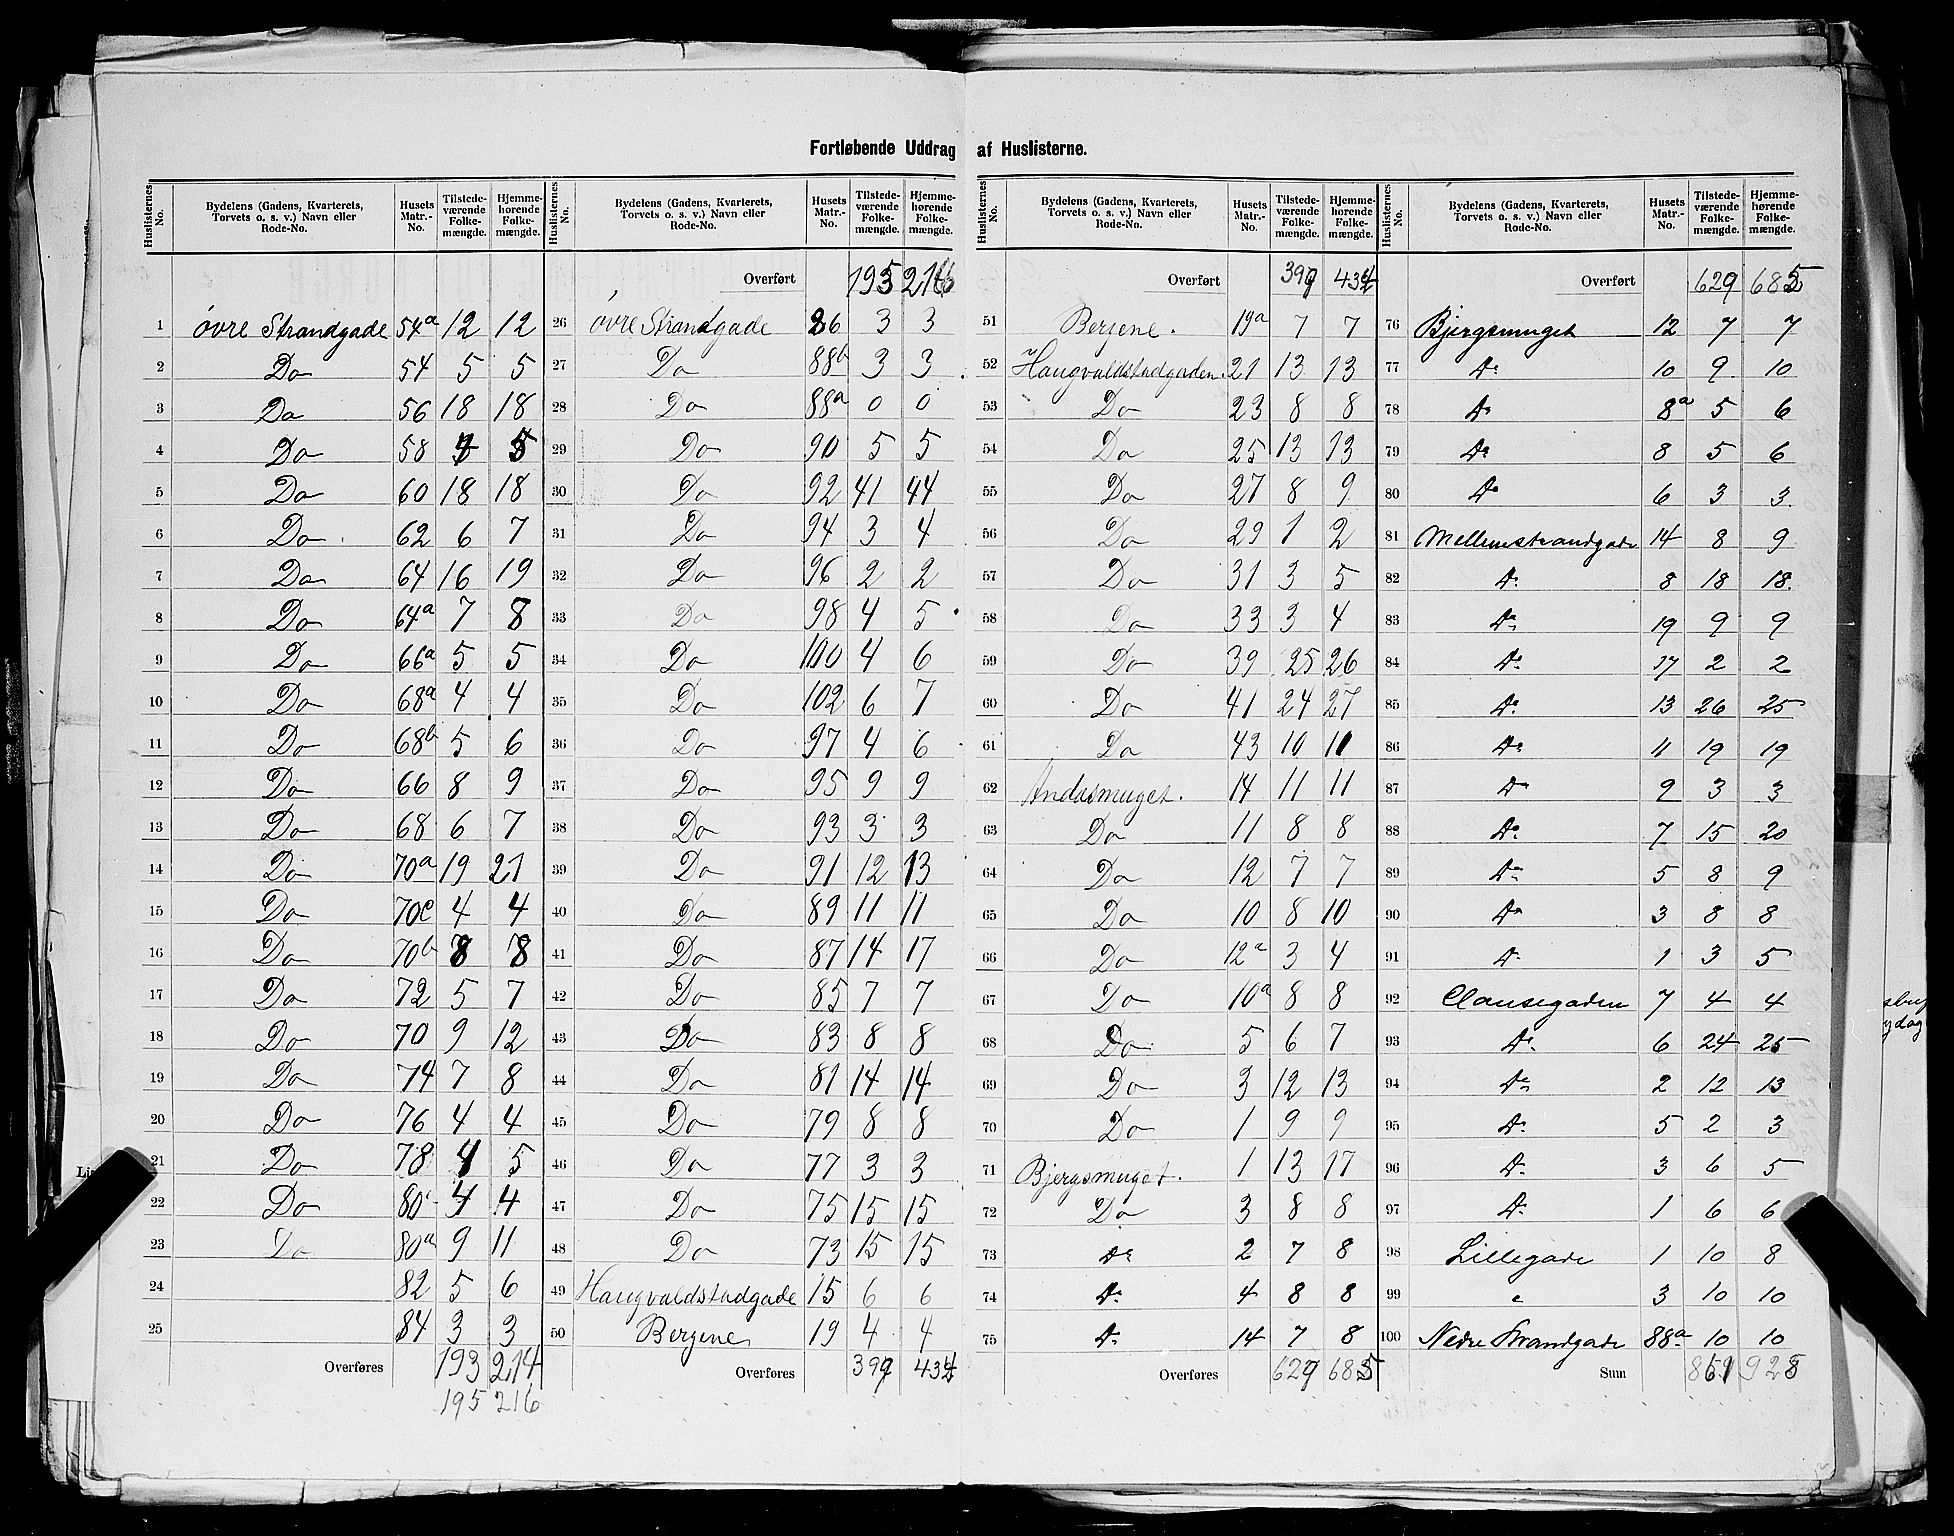 Fortløbende Uddrag af Huslisterne.
Huslisternes No. | Bydelens (Gadens, Kvarterets, Torvets o. s. v.) Navn eller Rode-No. | Husets Matr.-No. | Tilstedeværende Folkemængde. | Hjemmehørende Folkemængde.
1 øvre Strandgade 54a 12 12
2 Do 54 5 5
3 Do 56 18 18
4 Do 58 5
5 Do 60 18 18
6 Do 62 6 7
7 Do 64 16 19
8 Do 64a 7 8
9 Do 66a 5 5
10 Do 68a 4 4
11 Do 68b 5 6
12 Do 66 8 9
13 Do 68 6 7
14 Do 70a 19 21
15 Do 70c 4 4
16 Do 70b 8 8
17 Do 72 5 7
18 Do 70 9 12
19 Do 74 7 8
20 Do 76 4 4
21 Do 78 4 5
22 Do 80 4 4
23 Do 80a 9 11
24 82 5 6
25 84 3 3
Overføres 193 214
195 216
Huslisternes No. | Bydelens (Gadens, Kvarterets, Torvets o. s. v.) Navn eller Rode-No. | Husets Matr.-No. | Tilstedeværende Folkemængde. | Hjemmehørende Folkemængde.
Overført 195 216
26 øvre Strandgade 86 3 3
27 Do 88b 3 3
28 Do 88a 0 0
29 Do 90 5 5
30 Do 92 41 44
31 Do 94 3 4
32 Do 96 2 2
33 Do 98 4 5
34 Do 100 4 6
35 Do 102 6 7
36 Do 97 4 6
37 Do 95 9 9
38 Do 93 3 3
39 Do 91 12 13
40 Do 89 11 11
41 Do 87 14 17
42 Do 85 7 7
43 Do 83 8 8
44 Do 81 14 14
45 Do 79 8 8
46 Do 77 3 3
47 Do 75 15 15
48 Do 73 15 15
49 Haugvaldstadgade 15 6 6
50 Bergene 19 4 4
Overføres 399 434
Huslisternes No. | Bydelens (Gadens, Kvarterets, Torvets o. s. v.) Navn eller Rode-No. | Husets Matr.-No. | Tilstedeværende Folkemængde. | Hjemmehørende Folkemængde.
Overført 399 434
51 Bergene. 19a 7 7
52 Haugvaldstadgaden. 21 13 13
53 Do 23 8 8
54 Do 25 13 13
55 Do 27 8 9
56 Do 29 1 2
57 Do 31 3 5
58 Do 33 3 4
59 Do 39 25 26
60 Do 41 24 27
61 Do 43 10 11
62 Andasmuget. 14 11 11
63 Do 11 8 8
64 Do 12 7 7
65 Do 10 8 10
66 Do 12a 3 4
67 Do 10a 8 8
68 Do 5 6 7
69 Do 3 12 13
70 Do 1 9 9
71 Bjergsmuget. 1 13 17
72 Do 3 8 8
73 do 2 7 8
74 do 4 8 8
75 do 14 7 8
Overføres 629 685
Huslisternes No. | Bydelens (Gadens, Kvarterets, Torvets o. s. v.) Navn eller Rode-No. | Husets Matr.-No. | Tilstedeværende Folkemængde. | Hjemmehørende Folkemængde.
Overført 629 685
76 Bjergsmuget 12 7 7
77 do 10 9 10
78 do 8a 5 6
79 do 8 5 6
80 do 6 3 3
81 Mellemstrandgade 14 8 9
82 do 8 18 18
83 do 19 9 9
84 do 17 2 2
85 do 13 26 25
86 do 11 19 19
87 do 9 3 3
88 do 7 15 20
89 do 5 8 9
90 do 3 8 8
91 do 1 3 5
92 Clausegaden 7 4 4
93 do 6 24 25
94 do 2 12 13
95 do 5 2 3
96 do 3 6 5
97 do 1 6 6
98 Lillegade 1 10 8
99 3 10 10
100 Nedre Strandgade 88a 10 10
Sum 861 928